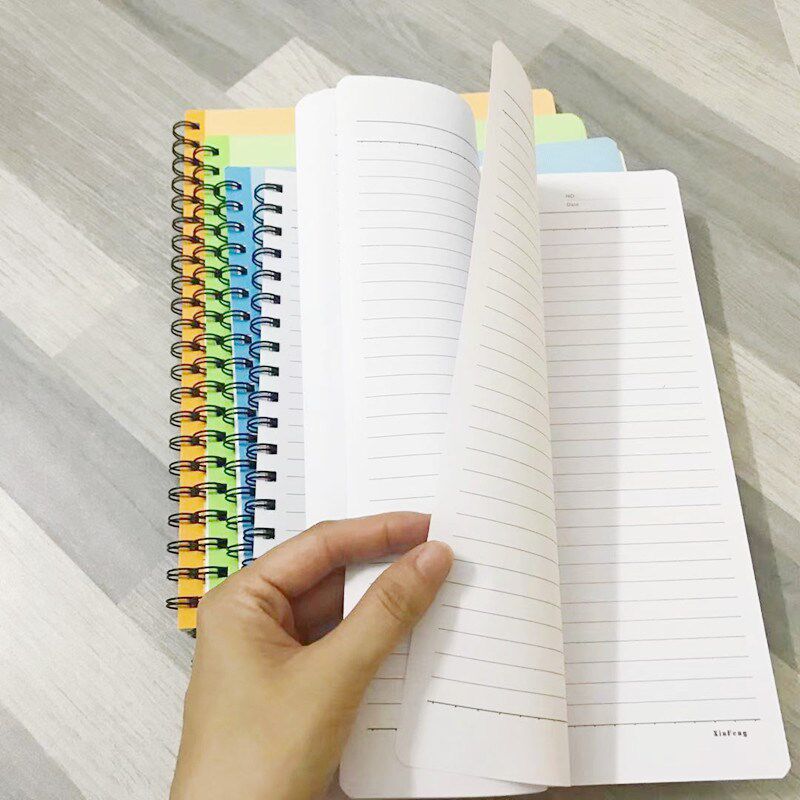 NO
Date
XinFeng